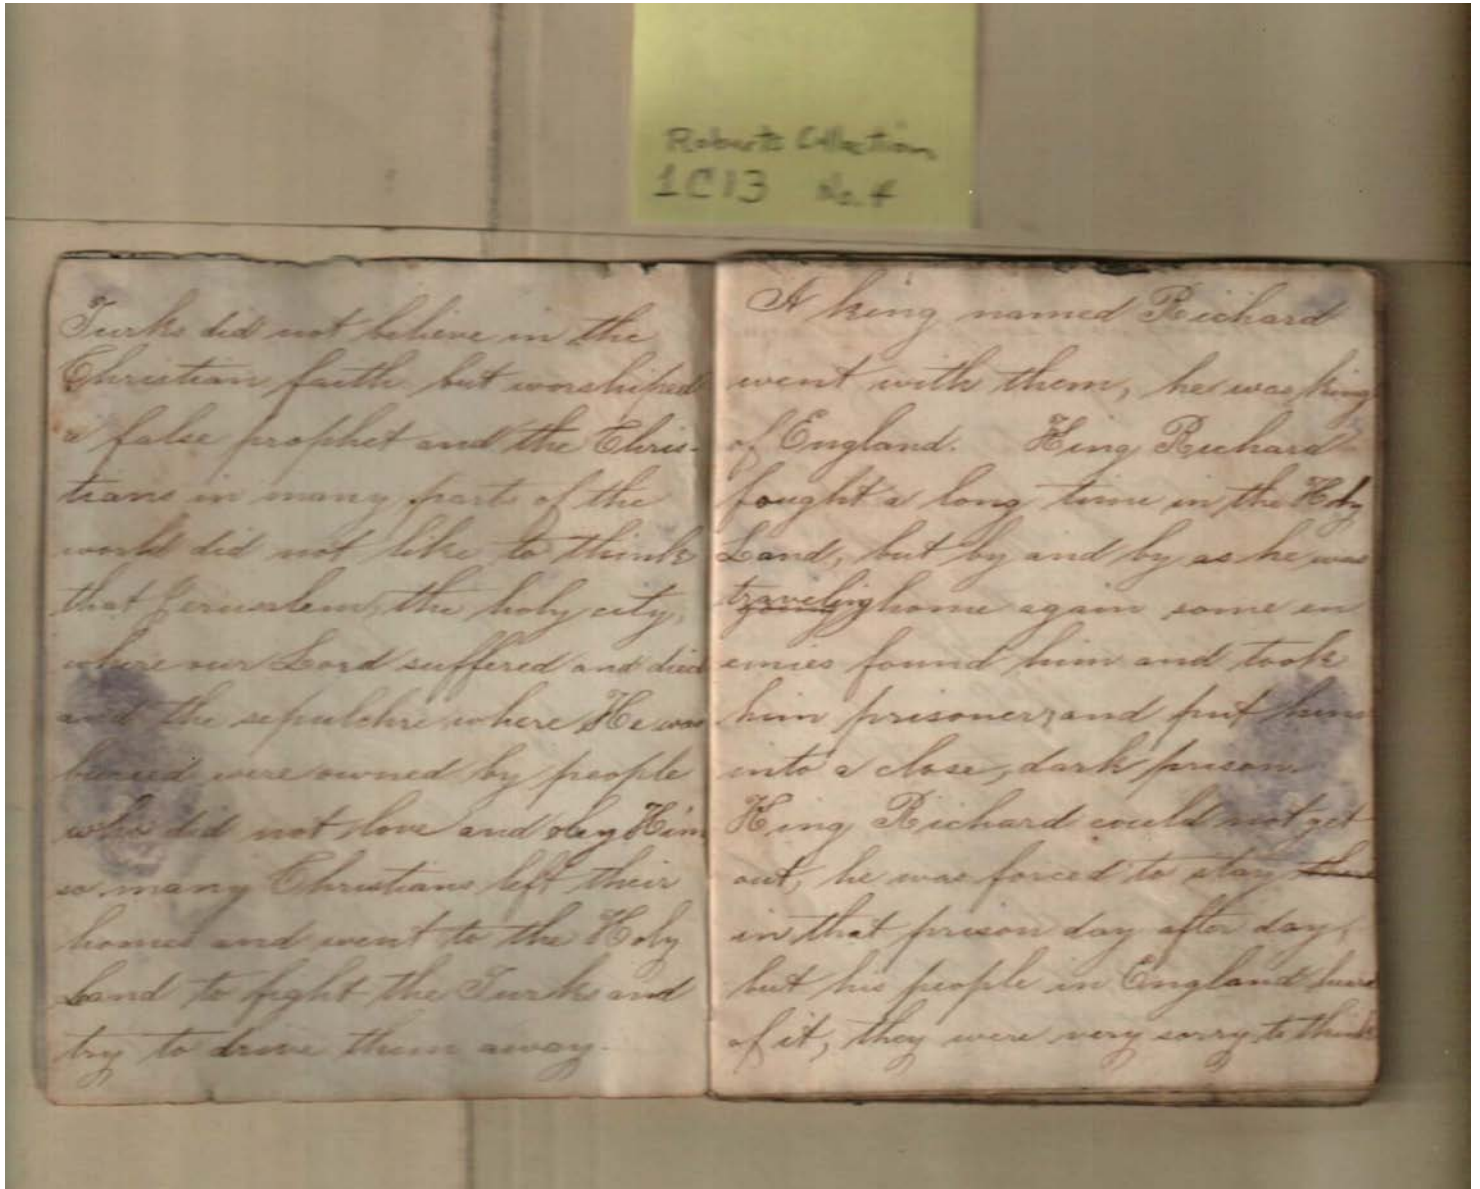 Roberts Collection
1C13 No. 4
Turks did not believe in the
Christian faith but worshiped
a false prophet and the Chris-
tians in many part of the
world did not like to think
that Jerusalem, the holy city,
where our Lord suffered and died
and the sepulchre where He was
buried were owned by people
who did not love and obey Him
so many Christians left their
homes and went to the Holy
Land to fight the Turks and
try to drive them away.
A king named Richard
went with them, he was king
of England. King Richard
fought a long time in the Holy
Land, but by and by as he was
traveling home again some en
emies found him and took
him prisoner, and put him
into a close, dark prison
King Richard could not get
out, he was forced to stay there
in that prison day after day,
but his people in England heard
of it, they were very sorry to think